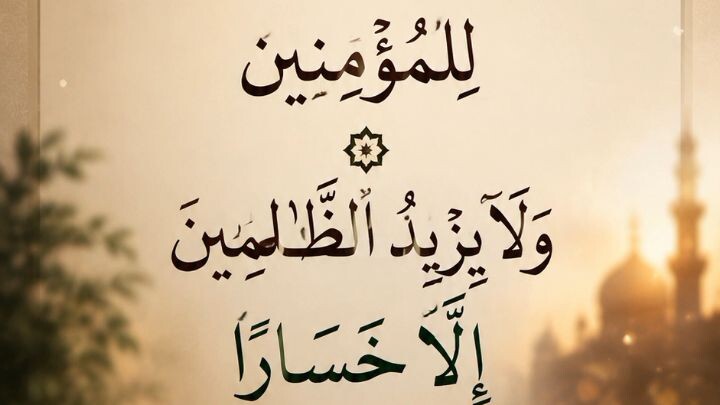 لِلْمُؤْمِنِين
وَلَا يَزِيدُ ٱلظَّـٰلِمِينَ
إِلَّا خَسَارًا